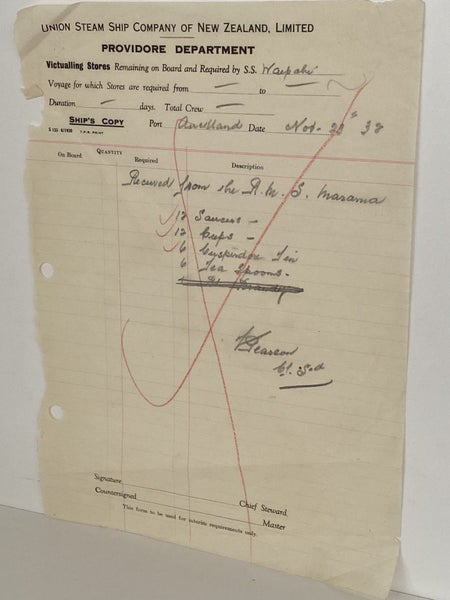 UNION STEAM SHIP COMPANY OF NEW ZEALAND, LIMITED
PROVIDORE DEPARTMENT
Victualling Stores Remaining on Board and Required by S.S. Waipahi
Voyage for which Stores are required from — to —
Duration — days. Total Crew —
SHIP'S COPY Port Auckland Date Nov. 28th 38
T.P.R. PRINT
QUANTITY
On Board Required Description
Received from the R.M.S. Marama
12 Saucers —
12 Cups —
6 Tin
6 Tea Spoons -
Pearson
Ch. Std
Signature
Chief Steward
Countersigned
Master
This form to be used for interim requirements only.